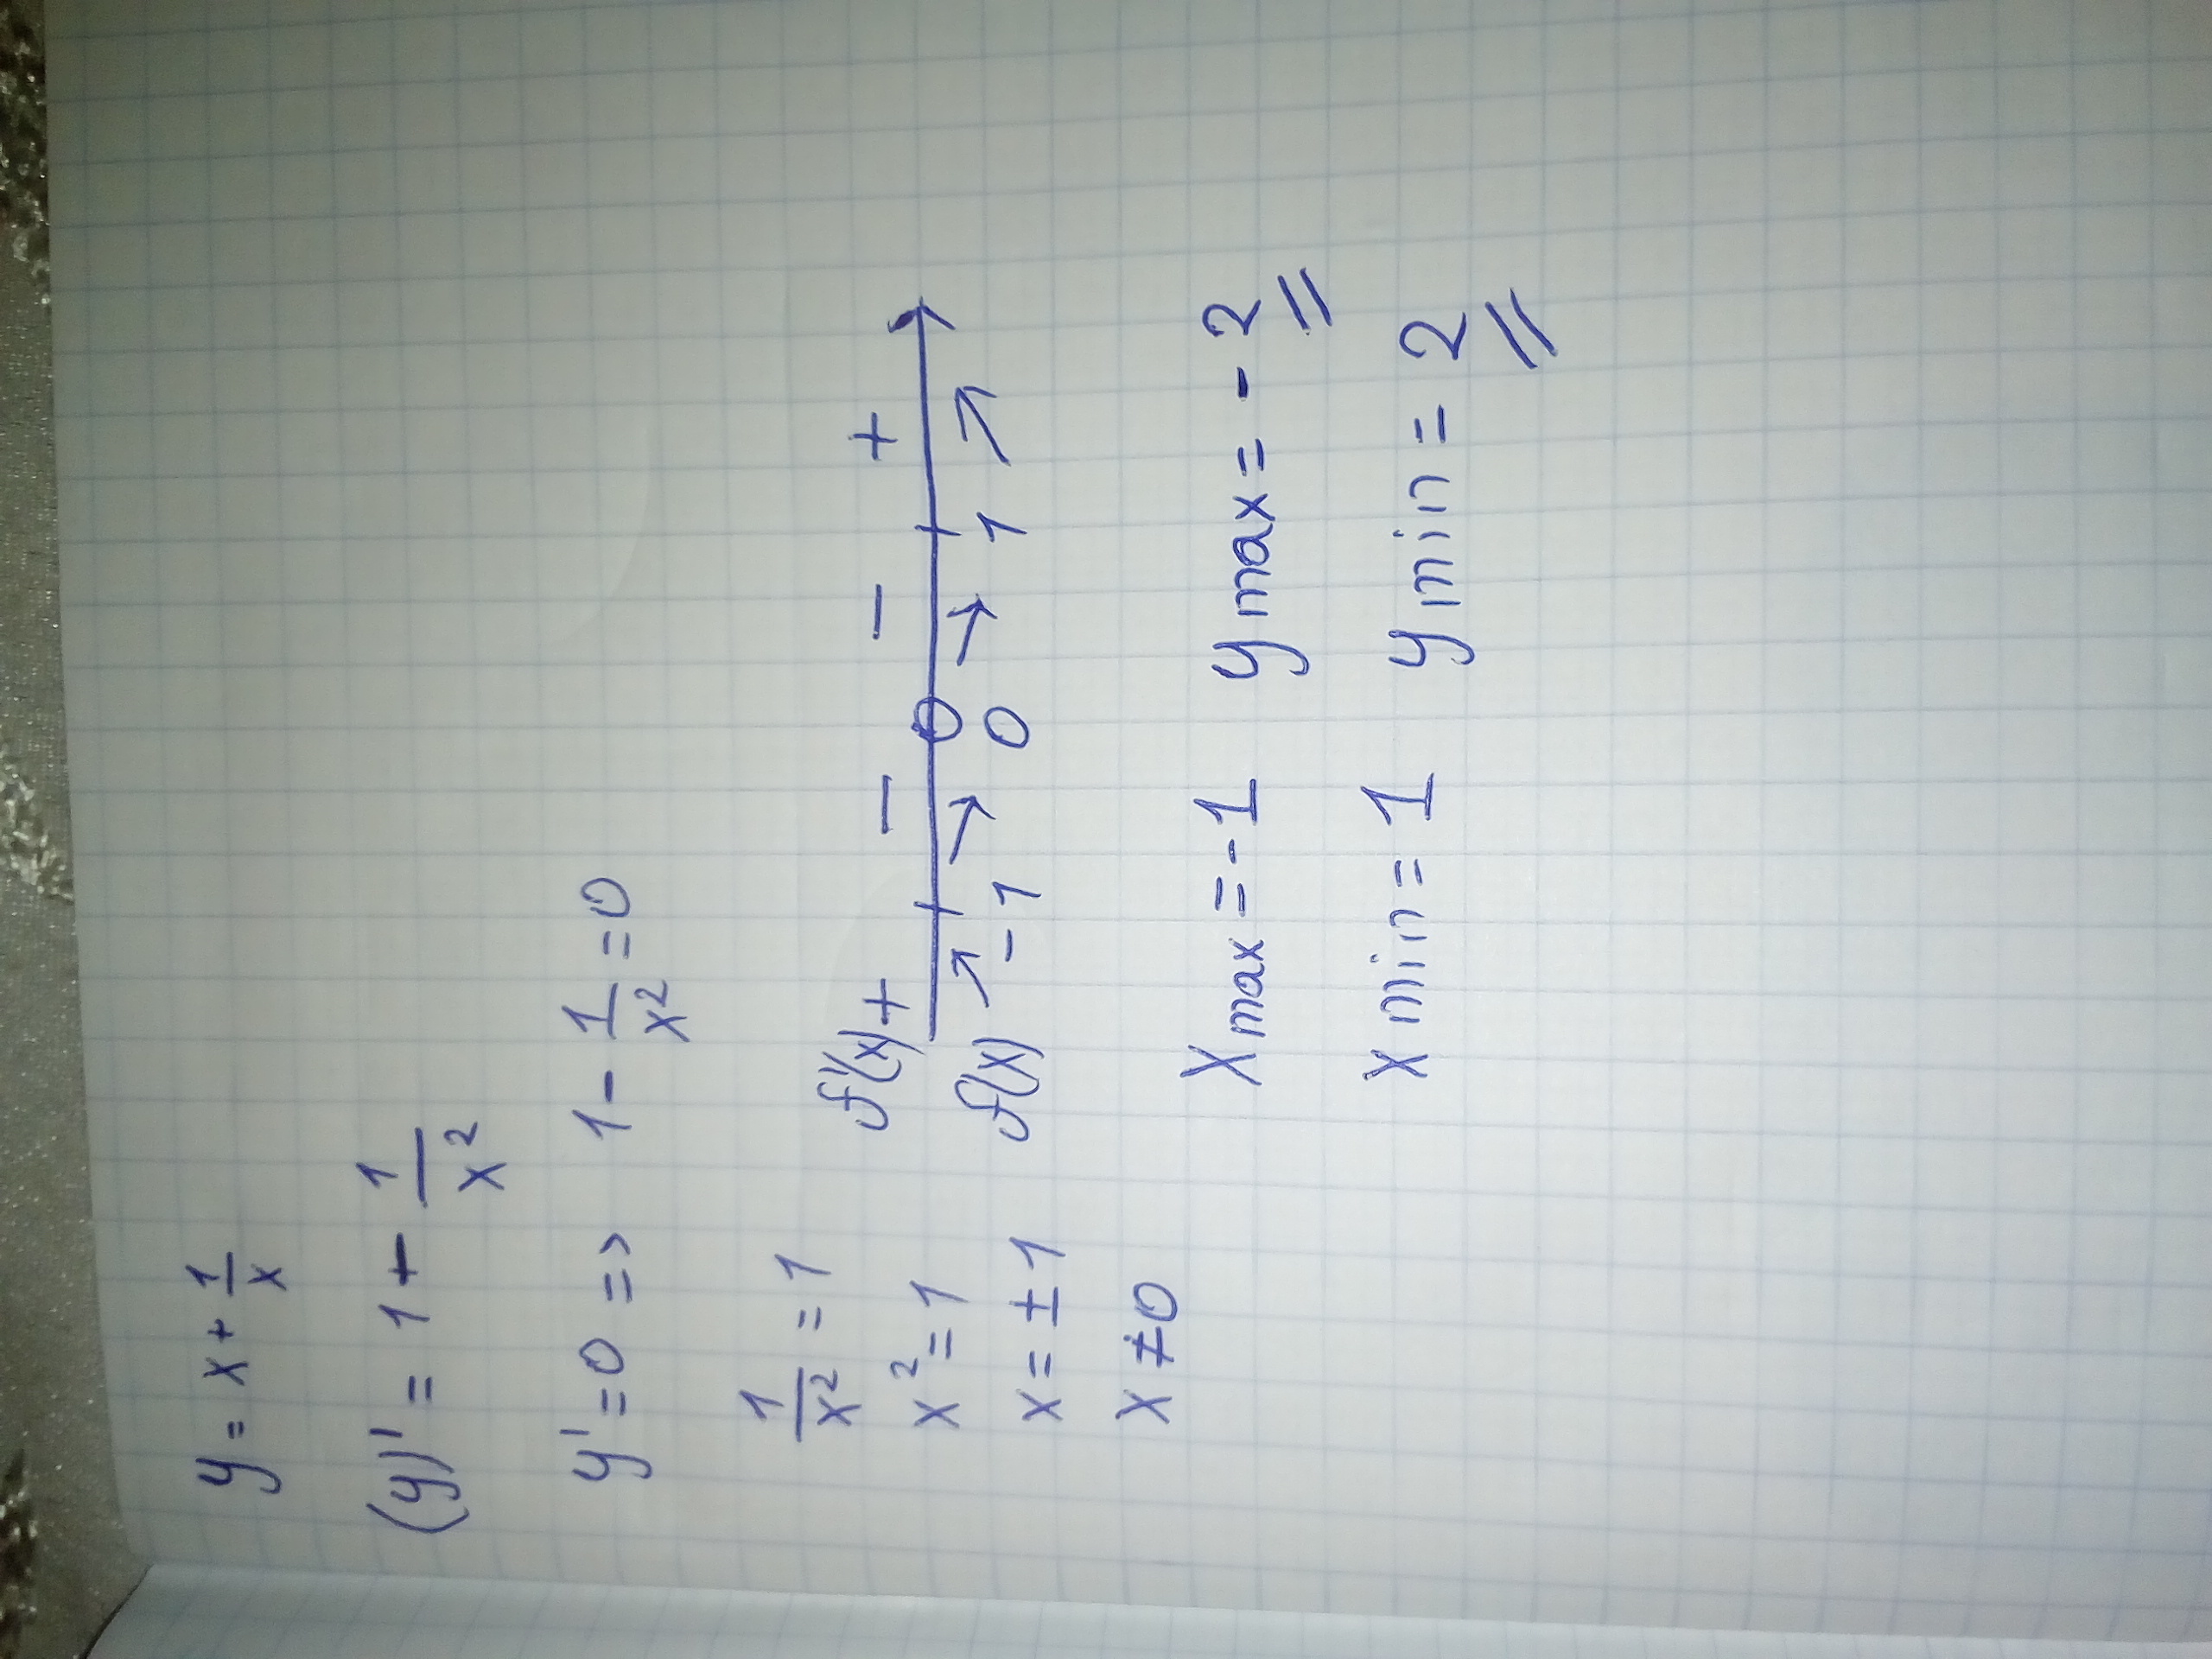 y = x + 1/x
(y)' = 1 + 1/x²
y' = 0 => 1 - 1/x² = 0
1/x² = 1
x² = 1
x = ± 1
x ≠ 0
f'(x) + - - +
f(x) ↗ -1 ↘ 0 ↘ 1 ↗
x max = -1 y max = -2
x min = 1 y min = 2